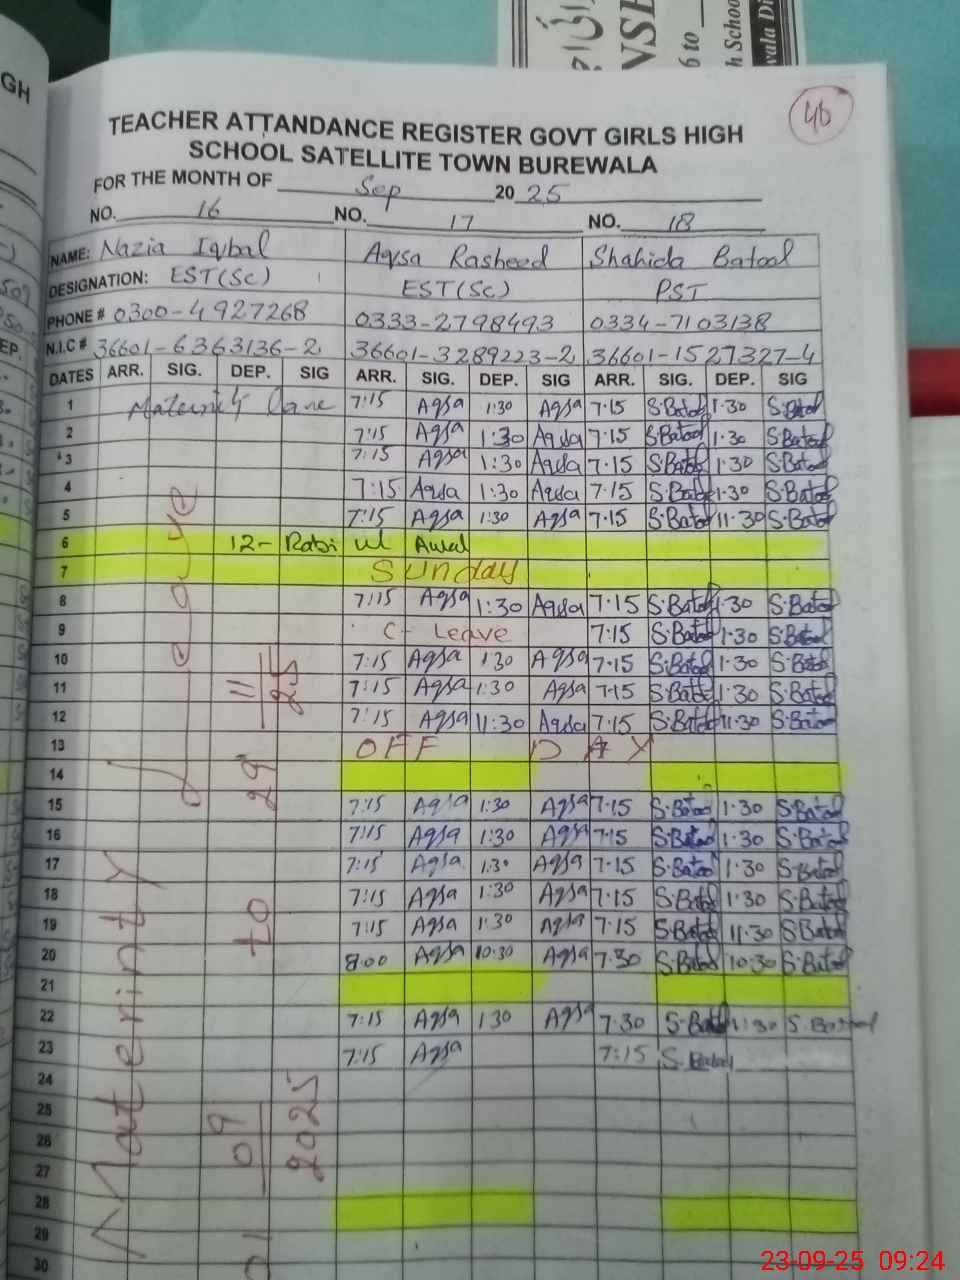 40
TEACHER ATTANDANCE REGISTER GOVT GIRLS HIGH
SCHOOL SATELLITE TOWN BUREWALA
FOR THE MONTH OF Sep 20 25
NO. 16 NO. 17 NO. 18
NAME: Nazia Iqbal Aqsa Rasheed Shahida Batool
DESIGNATION: EST(SC) EST(SC) PST
PHONE # 0300-4927268 0333-2798493 0334-7103138
N.I.C # 36601-6363136-2 36601-3289223-2 36601-1527327-4
DATES ARR. SIG. DEP. SIG ARR. SIG. DEP. SIG ARR. SIG. DEP. SIG
1 7:15 Aqsa 1:30 Aqsa 7.15 S.Batool 1.30 S.Batool
2 7:15 Aqsa 1:30 Aqsa 7.15 S.Batool 1.30 S.Batool
3 7:15 Aqsa 1:30 Aqsa 7.15 S.Batool 1.30 S.Batool
4 7:15 Aqsa 1:30 Aqsa 7.15 S.Batool 1.30 S.Batool
5 7:15 Aqsa 1:30 Aqsa 7.15 S.Batool 11.30 S.Batool
6 12- Rabi ul Awal
7 Sunday
8 7:15 Aqsa 1:30 Aqsa 7.15 S.Batool 1.30 S.Batool
9 C- Leave 7.15 S.Batool 1.30 S.Batool
10 7:15 Aqsa 1:30 Aqsa 7.15 S.Batool 1.30 S.Batool
11 7:15 Aqsa 1:30 Aqsa 7.15 S.Batool 1.30 S.Batool
12 7:15 Aqsa 11:30 Aqsa 7.15 S.Batool 11.30 S.Batool
13 OFF DAY
14
15 7:15 Aqsa 1:30 Aqsa 7.15 S.Batool 1.30 S.Batool
16 7:15 Aqsa 1:30 Aqsa 7.15 S.Batool 1.30 S.Batool
17 7:15 Aqsa 1:30 Aqsa 7.15 S.Batool 1.30 S.Batool
18 7:15 Aqsa 1:30 Aqsa 7.15 S.Batool 1.30 S.Batool
19 7:15 Aqsa 1:30 Aqsa 7.15 S.Batool 11.30 S.Batool
20 8:00 Aqsa 10:30 Aqsa 7.30 S.Batool 10.30 S.Batool
21
22 7:15 Aqsa 1:30 Aqsa 7.30 S.Batool 11:30 S.Batool
23 7:15 Aqsa 7:15 S.Batool
24
25
26
27
28
29
30
Materinty Leave
01 09 2025 to 29 11 25
23-09-25 09:24